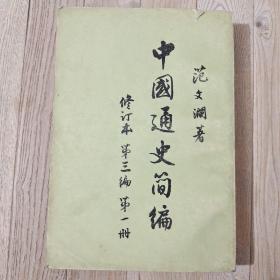 范文澜著
中國通史简编
修订本 第三编 第一册